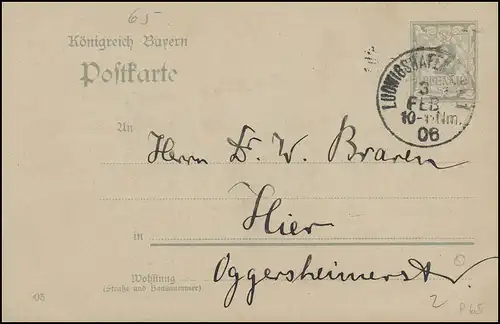 65
Königreich Bayern
Postkarte
LUDWIGSHAFEN
3
FEB
10-11 Nm.
06
An
Herrn Dr. W. Braren
Hier
in
Oggersheimerstr.
Wohnung
(Straße und Hausnummer)
05
2
P 65